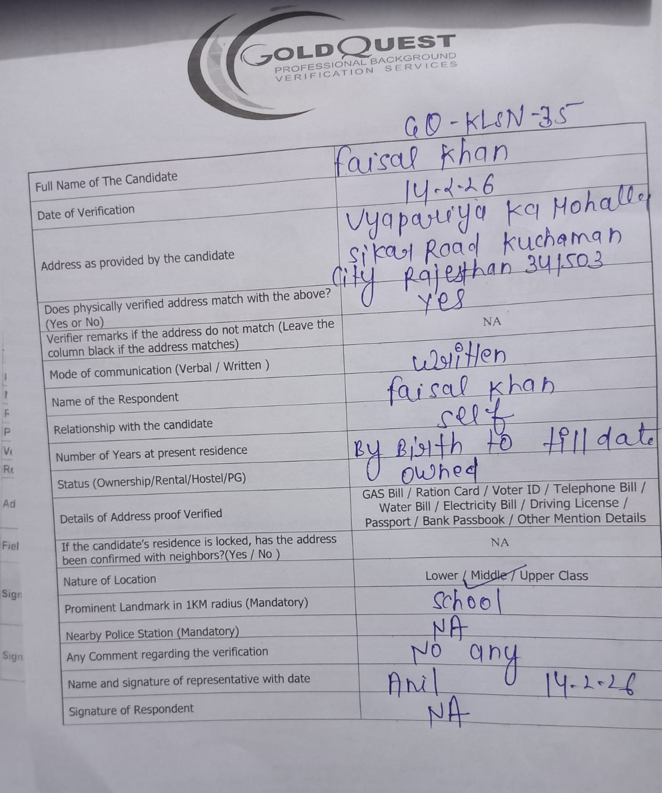 GOLDQUEST
PROFESSIONAL BACKGROUND
VERIFICATION SERVICES
GQ-KLSN-35
Full Name of The Candidate faisal khan
Date of Verification 14-2-26
Address as provided by the candidate Vyapariya Ka Mohalla
Sikar Road Kuchaman
City Rajesthan 341503
Does physically verified address match with the above?
(Yes or No) yes
Verifier remarks if the address do not match (Leave the
column black if the address matches) NA
Mode of communication (Verbal / Written ) written
Name of the Respondent faisal khan
Relationship with the candidate self
Number of Years at present residence By Birth to till date
Status (Ownership/Rental/Hostel/PG) owned
Details of Address proof Verified GAS Bill / Ration Card / Voter ID / Telephone Bill /
Water Bill / Electricity Bill / Driving License /
Passport / Bank Passbook / Other Mention Details
If the candidate's residence is locked, has the address
been confirmed with neighbors?(Yes / No ) NA
Nature of Location Lower / Middle / Upper Class
Prominent Landmark in 1KM radius (Mandatory) school
Nearby Police Station (Mandatory) NA
Any Comment regarding the verification No any
Name and signature of representative with date Anil 14-2-26
Signature of Respondent NA
Ad
Fiel
Sign
Sign